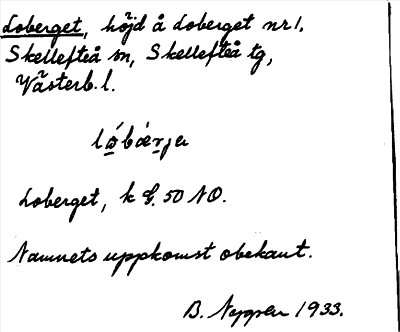 Loberget, höjd å Loberget nr 1,
Skellefteå sn, Skellefteå tg,
Västerb. l.
lo̱´bæ´r̯jer
Loberget, k G. 50 NO.
Namnets uppkomst obekant.
B. 1933.